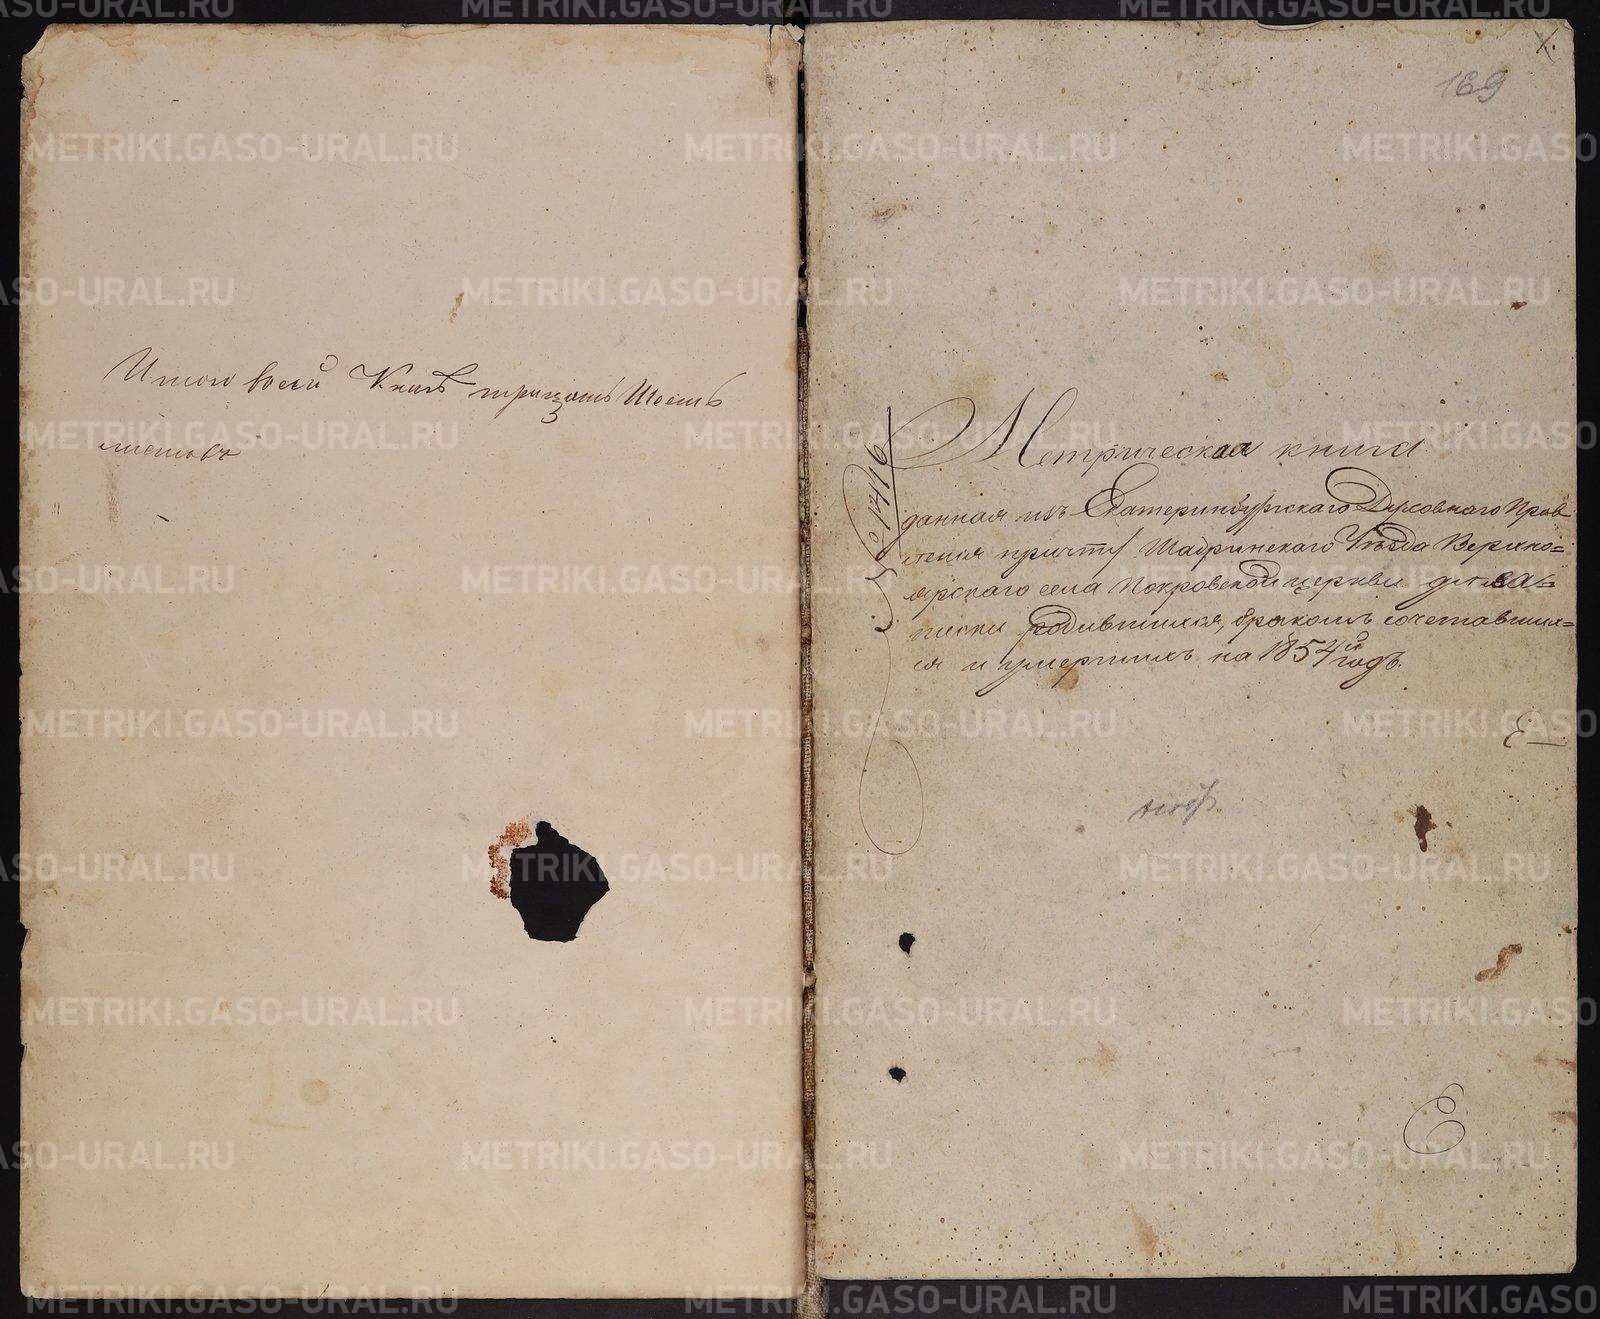 Итого въ сей Книгѣ тритцать Шесть
листовъ
169
№ 1416
Метрическая книга
данная изъ Екатеринбургскаго Духовнаго Прав
ленія причту Шадринскаго Уѣзда Верхно=
ярскаго села Покровской церкви для за=
писки родившихся, бракомъ сочетавших=
ся и умершихъ на 1854й годъ.
METRIKI.GASO-URAL.RU